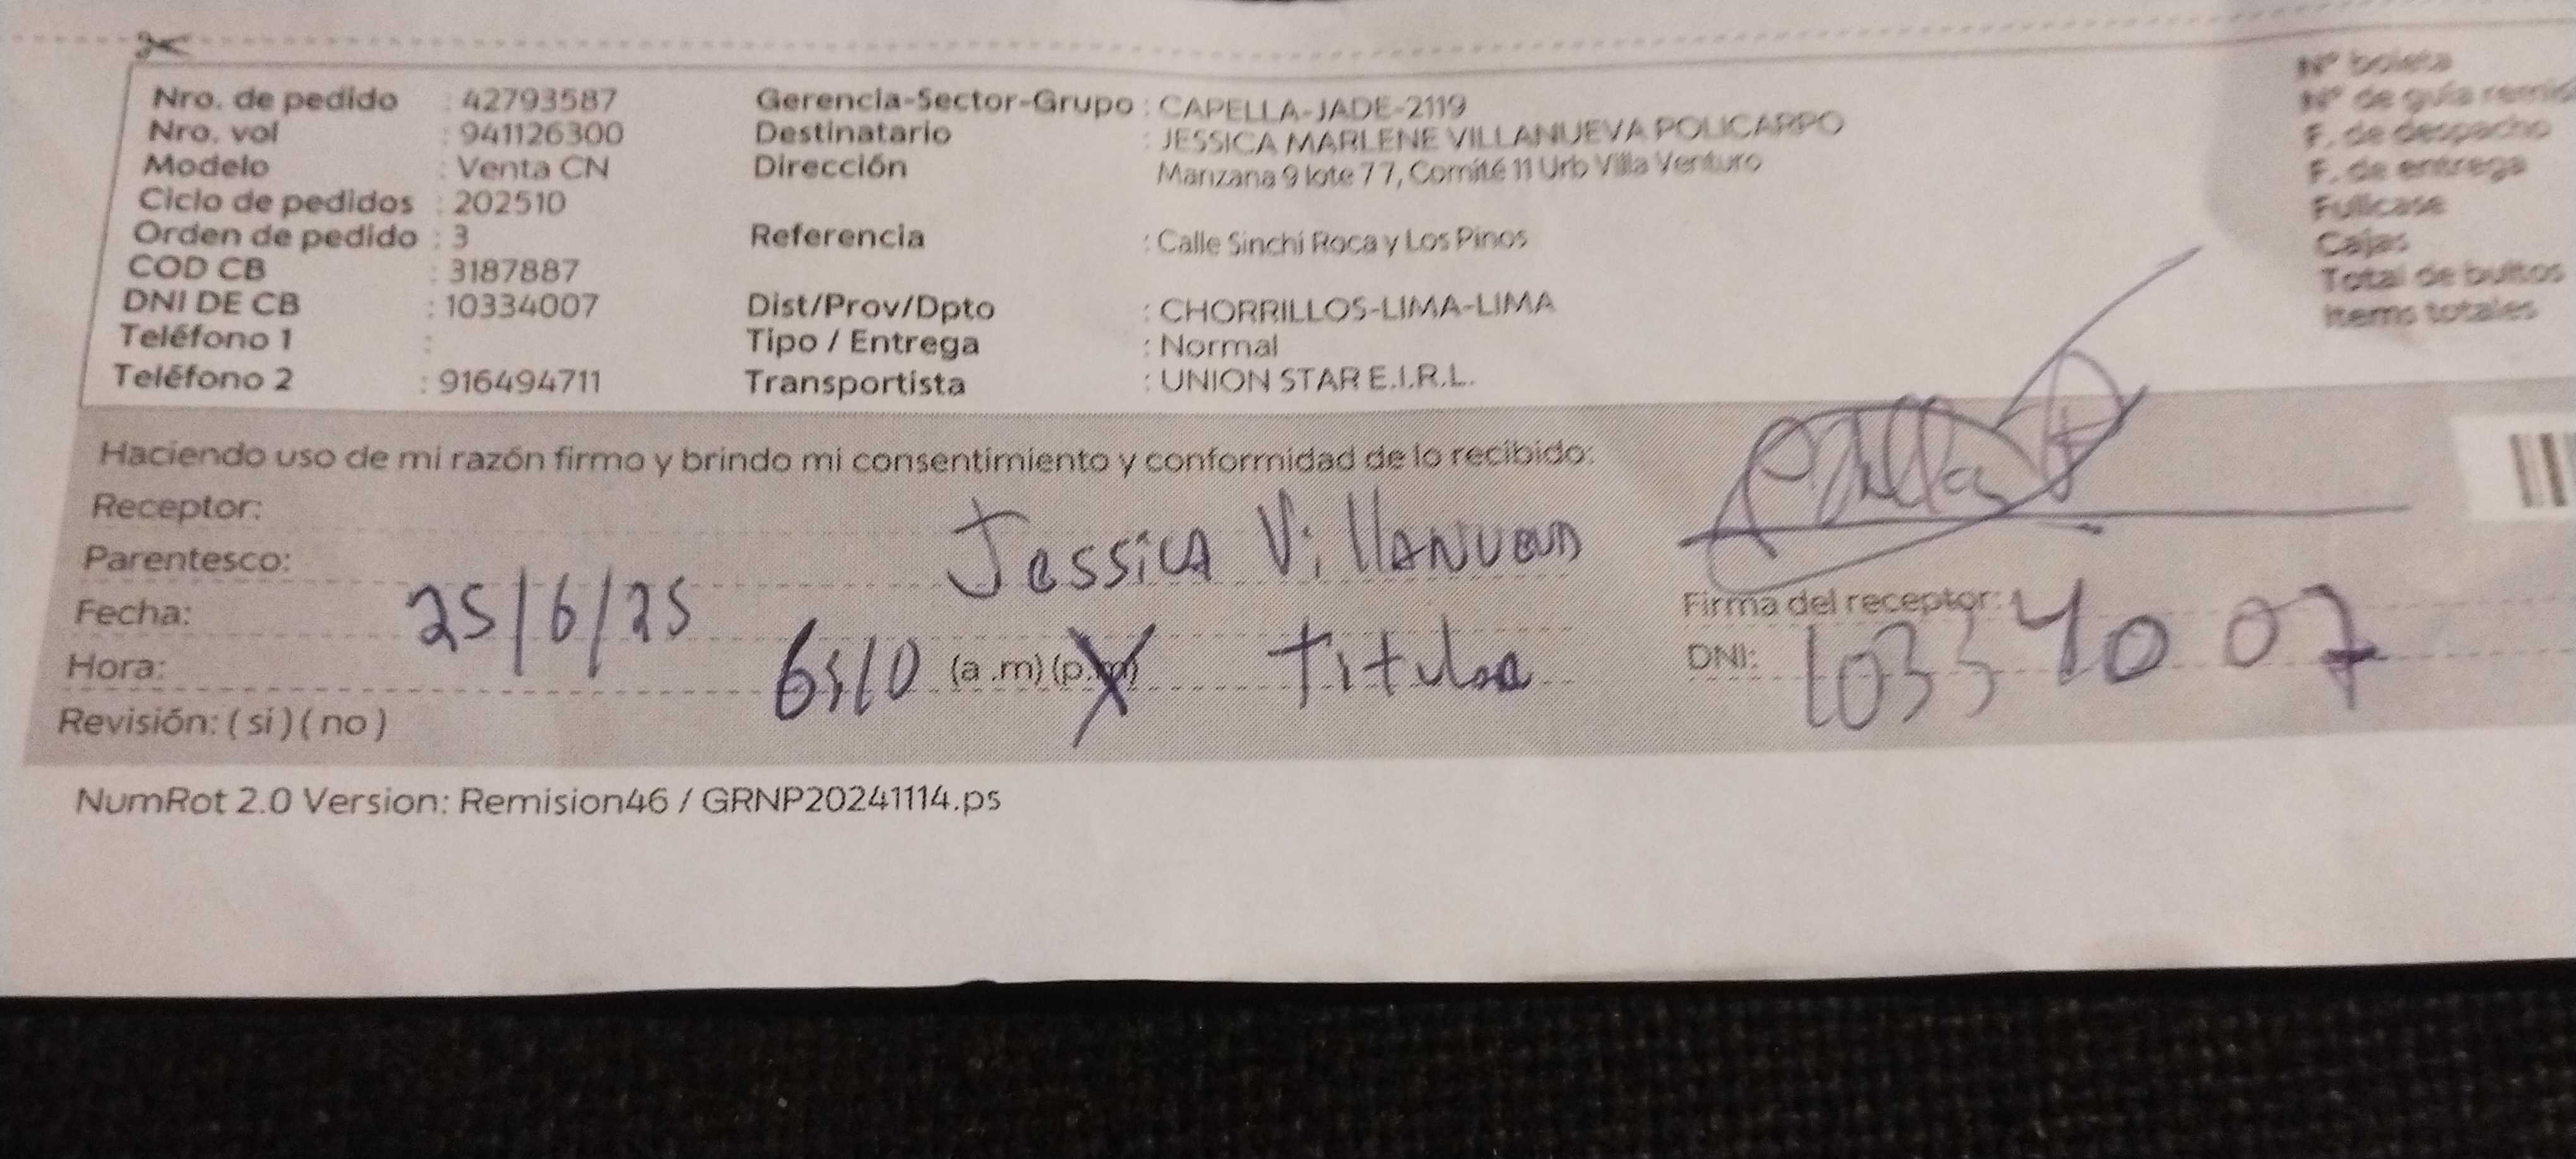 Nro. de pedido : 42793587
Nro. vol : 941126300
Modelo : Venta CN
Ciclo de pedidos : 202510
Orden de pedido : 3
COD CB : 3187887
DNI DE CB : 10334007
Teléfono 1 :
Teléfono 2 : 916494711
Gerencia-Sector-Grupo : CAPELLA-JADE-2119
Destinatario : JESSICA MARLENE VILLANUEVA POLICARPO
Dirección Manzana 9 lote 77, Comité 11 Urb Villa Venturo
Referencia : Calle Sinchi Roca y Los Pinos
Dist/Prov/Dpto : CHORRILLOS-LIMA-LIMA
Tipo / Entrega : Normal
Transportista : UNION STAR E.I.R.L.
Nº boleta
Nº de guía remis
F. de despacho
F. de entrega
Fullcase
Cajas
Total de bultos
Items totales
Haciendo uso de mi razón firmo y brindo mi consentimiento y conformidad de lo recibido:
Receptor: Jessica Villanueva
Parentesco:
Fecha: 25/6/25
Hora: (a .m) (p.m) Titular
Revisión: ( si ) ( no )
Firma del receptor:
DNI: 10334007
NumRot 2.0 Version: Remision46 / GRNP20241114.ps